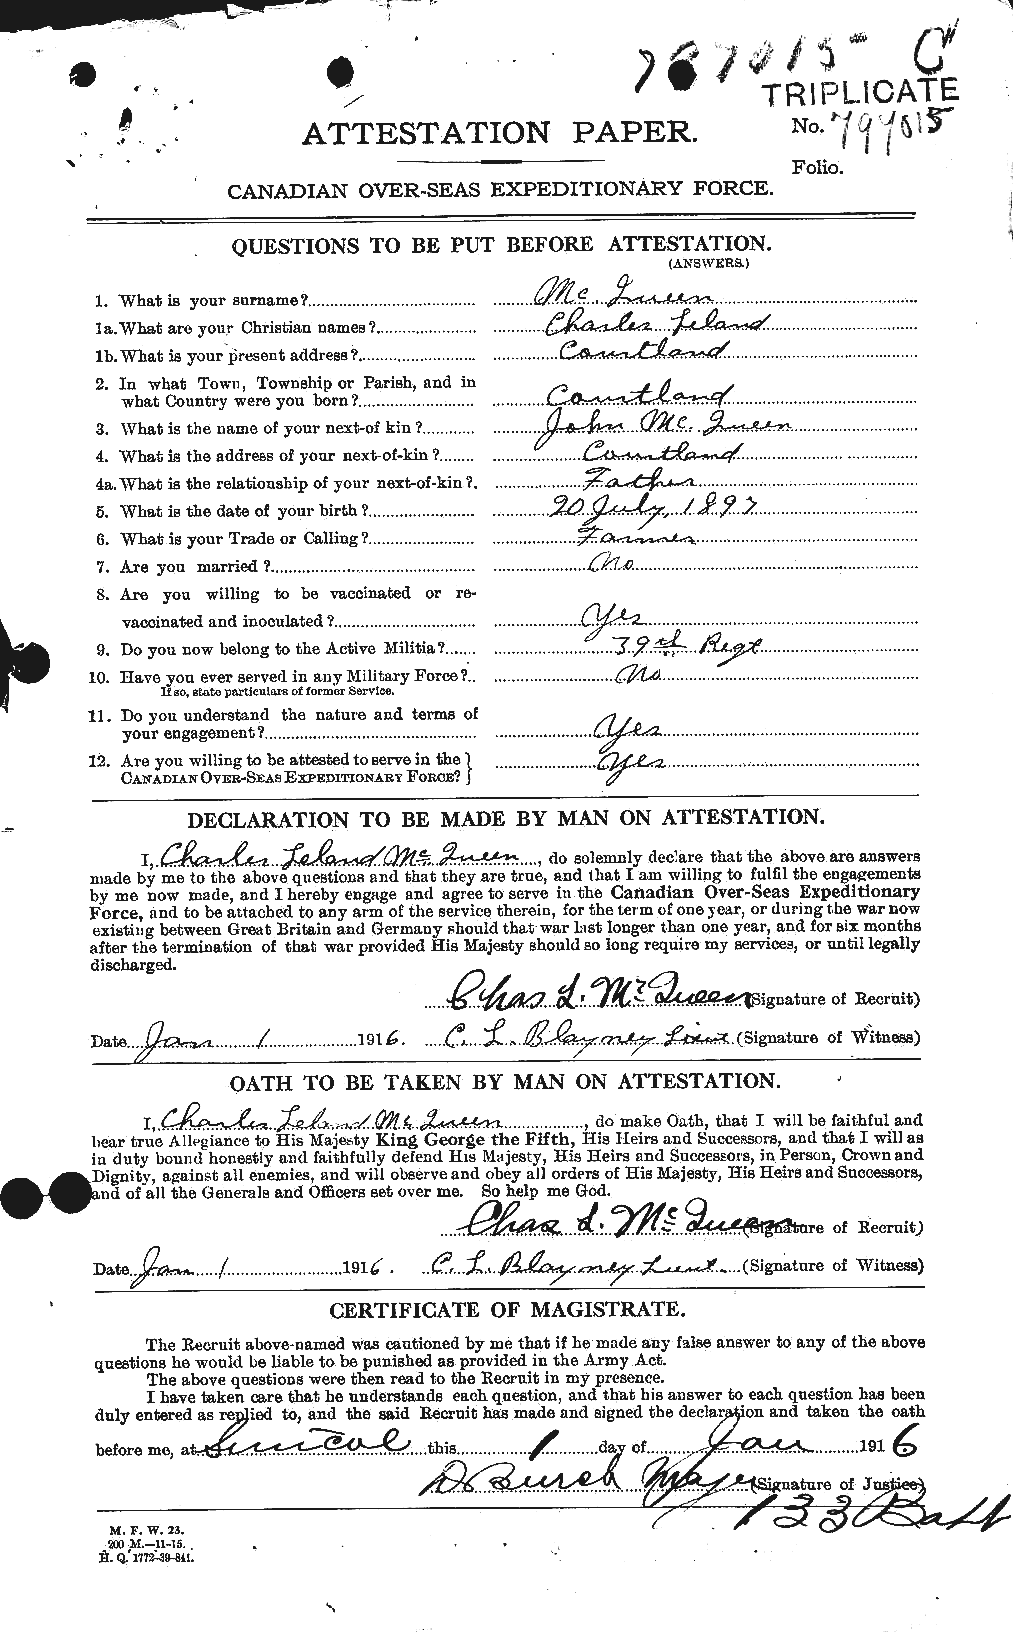 797015 C"
TRIPLICATE
ATTESTATION PAPER.
No. 797015
Folio.
CANADIAN OVER-SEAS EXPEDITIONARY FORCE.
QUESTIONS TO BE PUT BEFORE ATTESTATION.
(ANSWERS.)
1. What is your surname? Mc. Queen
1a. What are your Christian names? Charles Leland
1b. What is your present address? Courtland
2. In what Town, Township or Parish, and in
what Country were you born? Courtland
3. What is the name of your next-of kin? John Mc. Queen
4. What is the address of your next-of-kin? Courtland
4a. What is the relationship of your next-of-kin? Father
5. What is the date of your birth? 20 July, 1897
6. What is your Trade or Calling? Farmer
7. Are you married? No
8. Are you willing to be vaccinated or re-
vaccinated and inoculated? Yes
9. Do you now belong to the Active Militia? 39th Regt
10. Have you ever served in any Military Force? No
If so, state particulars of former Service.
11. Do you understand the nature and terms of
your engagement? Yes
12. Are you willing to be attested to serve in the
CANADIAN OVER-SEAS EXPEDITIONARY FORCE? Yes
DECLARATION TO BE MADE BY MAN ON ATTESTATION.
I, Charles Leland Mc Queen, do solemnly declare that the above are answers
made by me to the above questions and that they are true, and that I am willing to fulfil the engagements
by me now made, and I hereby engage and agree to serve in the Canadian Over-Seas Expeditionary
Force, and to be attached to any arm of the service therein, for the term of one year, or during the war now
existing between Great Britain and Germany should that war last longer than one year, and for six months
after the termination of that war provided His Majesty should so long require my services, or until legally
discharged.
Chas L. Mc Queen (Signature of Recruit)
Date Jan 1 1916. C. L. Blaymey Lieut (Signature of Witness)
OATH TO BE TAKEN BY MAN ON ATTESTATION.
I, Charles Leland Mc Queen, do make Oath, that I will be faithful and
bear true Allegiance to His Majesty King George the Fifth, His Heirs and Successors, and that I will as
in duty bound honestly and faithfully defend His Majesty, His Heirs and Successors, in Person, Crown and
Dignity, against all enemies, and will observe and obey all orders of His Majesty, His Heirs and Successors,
and of all the Generals and Officers set over me. So help me God.
Chas L. Mc Queen (Signature of Recruit)
Date Jan 1 1916. C. L. Blaymey Lieut. (Signature of Witness)
CERTIFICATE OF MAGISTRATE.
The Recruit above-named was cautioned by me that if he made any false answer to any of the above
questions he would be liable to be punished as provided in the Army Act.
The above questions were then read to the Recruit in my presence.
I have taken care that he understands each question, and that his answer to each question has been
duly entered as replied to, and the said Recruit has made and signed the declaration and taken the oath
before me, at Simcoe this 1 day of Jan 1916
D. Burch Major (Signature of Justice)
133 Batt
M. F. W. 23.
200 M.—11-15.
H. Q. 1772-39-841.